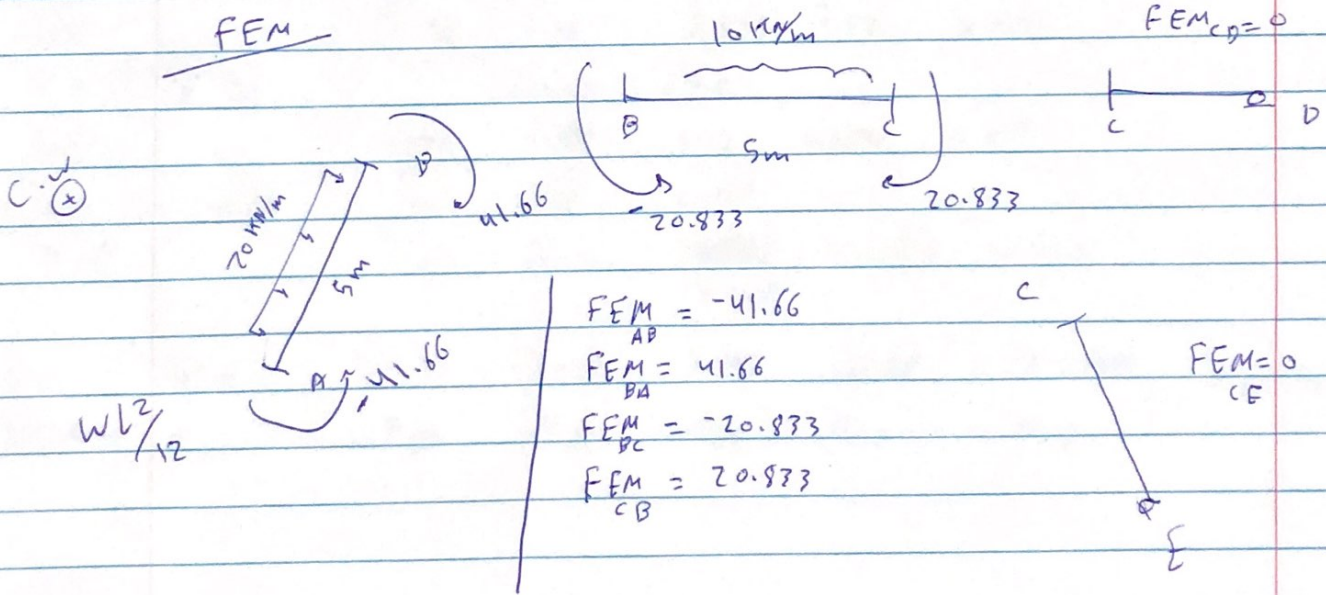 FEM
10 KN/m
FEM_CD = 0
B
C
5m
C
D
-20.833
20.833
C.W
+
20 KN/m
5m
B
41.66
A
-41.66
WL²/12
FEM_AB = -41.66
FEM_BA = 41.66
FEM_BC = -20.833
FEM_CB = 20.833
C
FEM_CE = 0
E